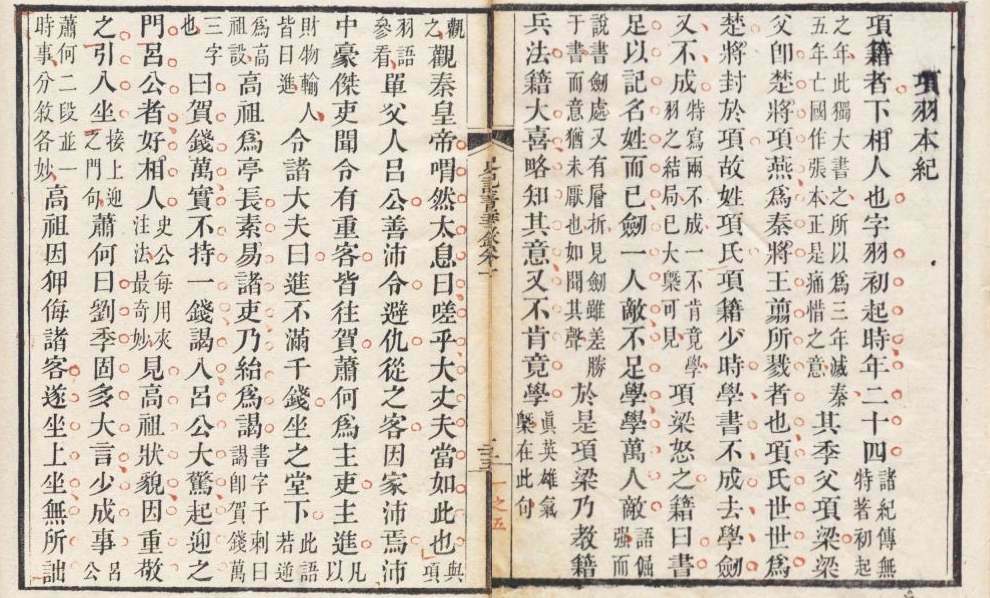 項羽本紀
項籍者下相人也字羽初起時年二十四諸紀傳無特著初起
之年此獨大書之所以爲三年滅秦五年亡國作張本正是痛惜之意其季父項梁梁
父卽楚將項燕爲秦將王翦所戮者也項氏世世爲
楚將封於項故姓項氏項籍少時學書不成去學劒
又不成特寫兩不成一不肯竟學羽之結局已大槩可見項梁怒之籍曰書
足以記名姓而已劒一人敵不足學學萬人敵語倔强而
說書劒處又有層折見劒雖差勝于書而意猶未厭也如聞其聲於是項梁乃敎籍
兵法籍大喜略知其意又不肯竟學眞英雄氣槩在此句
史記菁華錄卷一
一之五
觀之觀秦皇帝喟然太息曰嗟乎大丈夫當如此也與項
羽語參看單父人呂公善沛令避仇從之客因家沛焉沛
中豪傑吏聞令有重客皆往賀蕭何爲主吏主進凡以
財物輸人皆曰進令諸大夫曰進不滿千錢坐之堂下此語若道
爲高祖設高祖爲亭長素易諸吏乃紿爲謁書字于刺曰謁卽賀錢萬
三字也曰賀錢萬實不持一錢謁入呂公大驚起迎之
門呂公者好相人史公每用夾注法最奇妙見高祖狀貌因重敬
之引入坐接上迎之門句蕭何曰劉季固多大言少成事呂公
蕭何二段並一時事分敘各妙高祖因狎侮諸客遂坐上坐無所詘